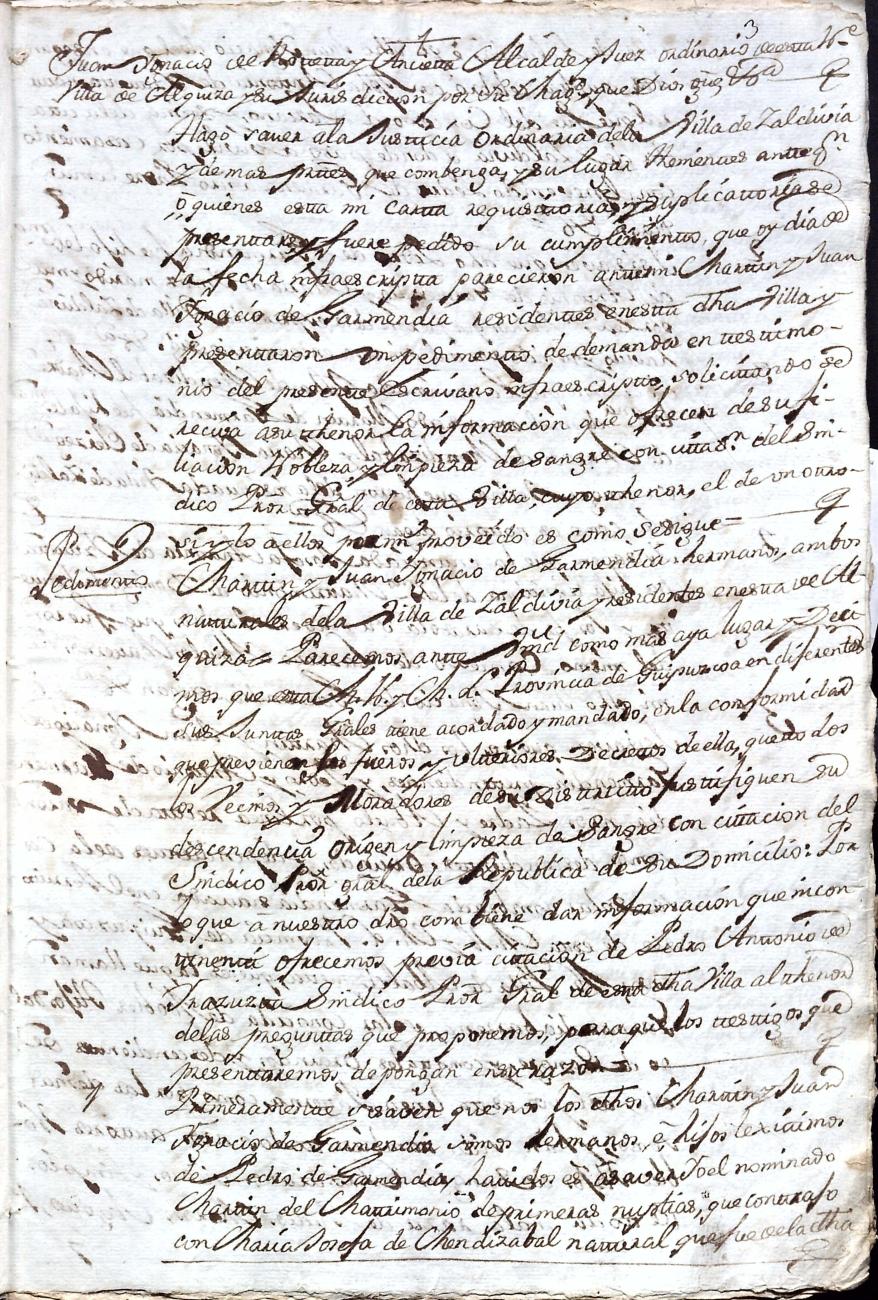 Juan Ignacio de Yrtetta y Ancietta Alcalde y Juez ordinario de esta N.e
Villa de Alquiza y su Jurisdiccion por su Mag.d que Dios gũe &.a
Hago saver ala Justicia Ordinaria dela Villa de Zaldivia
y demas prtes que combenga, y su lugar thenientes antte q.n
ò quienes esta mi cartta requisittoria y suplicattoria se
presenttare y fuere pedido su cumplimientto, que oy dia de
la fecha infraescriptta parecieron antte mi Marttin y Juan
Ygnacio de Garmendia residenttes en estta dha Villa y
presenttaron un pedimentto de demanda en ttesttimo-
nio del presente Escrivano infraescriptto, solicittando se
reciva a su thenor la informacion que ofrecen de su fi-
liacion Nobleza y limpieza de sangre con cittas.n del Sin-
dico Pror Gral de estta Villa, cuyo thenor, el de un autto
si y lo a ellos por mi proveido es como se sigue =
Pedimentto
Marttin y Juan Ignacio de Garmendia hermanos, ambos
natturales dela Villa de Zaldivia y residenttes en estta de Al-
quiza = Parecemos antte Vmd como mas aya lugar y Deci-
mos que estta M. N. y M. L. Provincia de Guipuzcoa en diferenttes
sus Junttas Grâles ttiene acordado y mandado, en la conformidad
que previenen los fueros y ultteriores Decrettos de ella, que ttodos
los Vecinos y Moradores de su Disttritto justtifiquen su
descendencia origen y limpieza de Sangre con cittacion del
Sindico Pror gral dela Republica de su Domicilio: Por
lo que a nuesttro dro combiene dar informacion que incon-
ttinentti ofrecemos previa cittacion de Pedro Anttonio de
Yrazuztta Sindico Pror Gral de estta dha Villa al thenor
delas pregunttas que proponemos, para que los ttesttigos que
presenttaremos depongan en su razon
Primeramentte si saven que nos los dhos Marttin y Juan
Ygnacio de Garmendia somos hermanos, è hijos lexitimos
de Pedro de Garmendia, havidos es a saver Yo el nominado
Marttin del Mattrimonio de primeras nuptias, que conttrajo
con Maria Josefa de Mendizabal nattural que fue de la dha